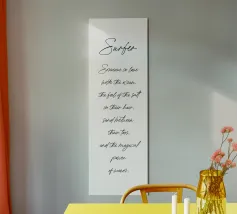 Surfer
Someone in love
with the ocean
the feel of the salt
in their hair
sand between
their toes
and the magical
power
of waves.